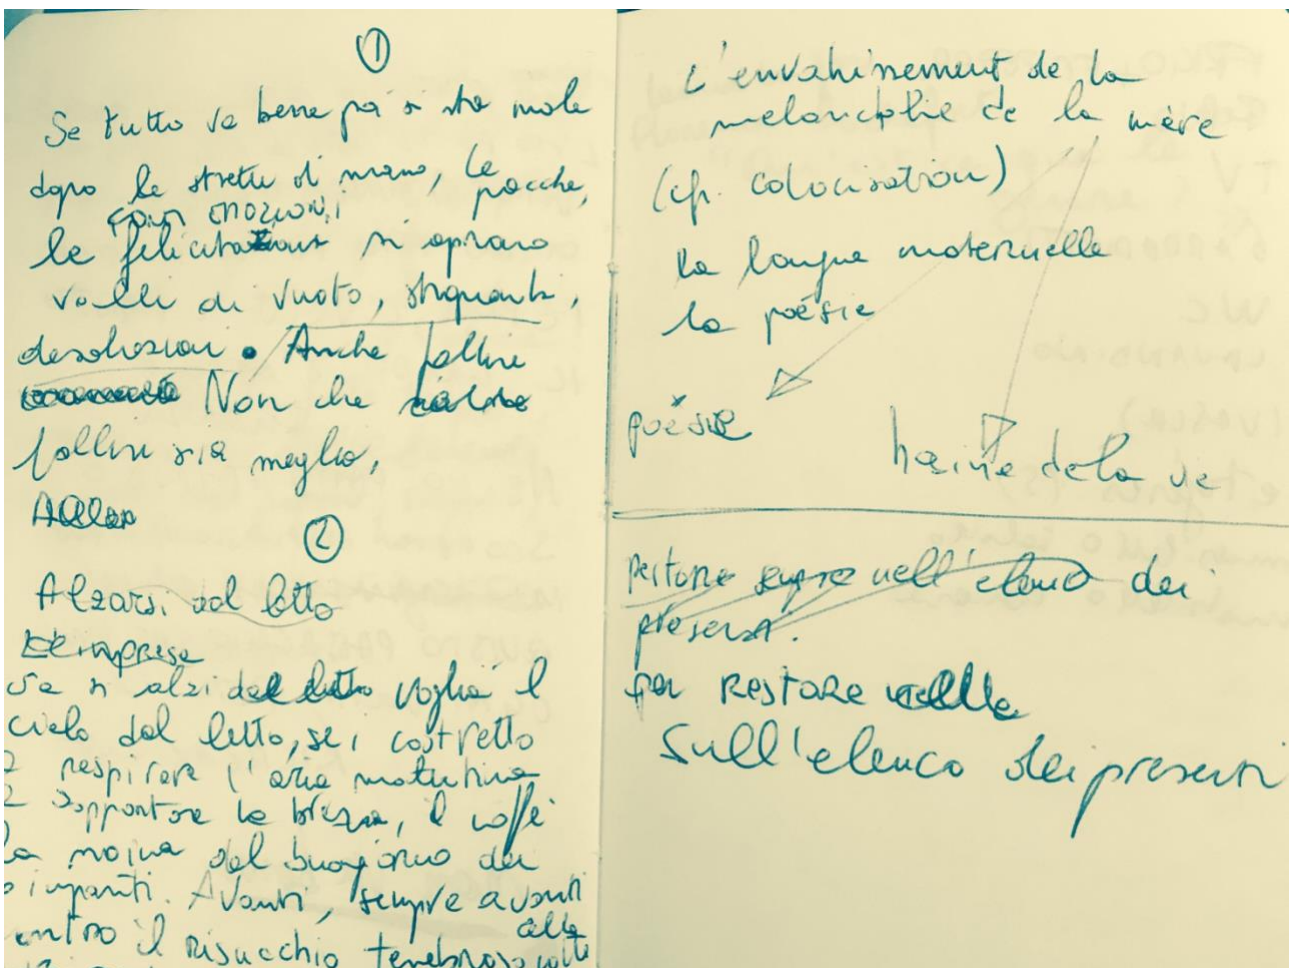 1
Se tutto va bene poi si sta male
dopo le strette di mano, le pacche,
forti emozioni
le felicitazioni si aprono
valli di vuoto,
desolazioni. Anche fallire
Non che
fallire sia meglio,
2
Alzarsi dal letto
È impresa
si alzi dal letto voglia il
cielo dal letto, sei costretto
a respirare l'aria mattutina
a sopportare la brezza, il caffè
la moina del buongiorno dei
Avanti, sempre avanti
contro il risucchio tenebroso alle
L'envahissement de la
melancolie de la mère
(cfr. colonisation)
la langue maternelle
la poésie
poésie
haine de la vie
restare sempre nell'elenco dei
presenti.
per restare nelle
sull'elenco dei presenti